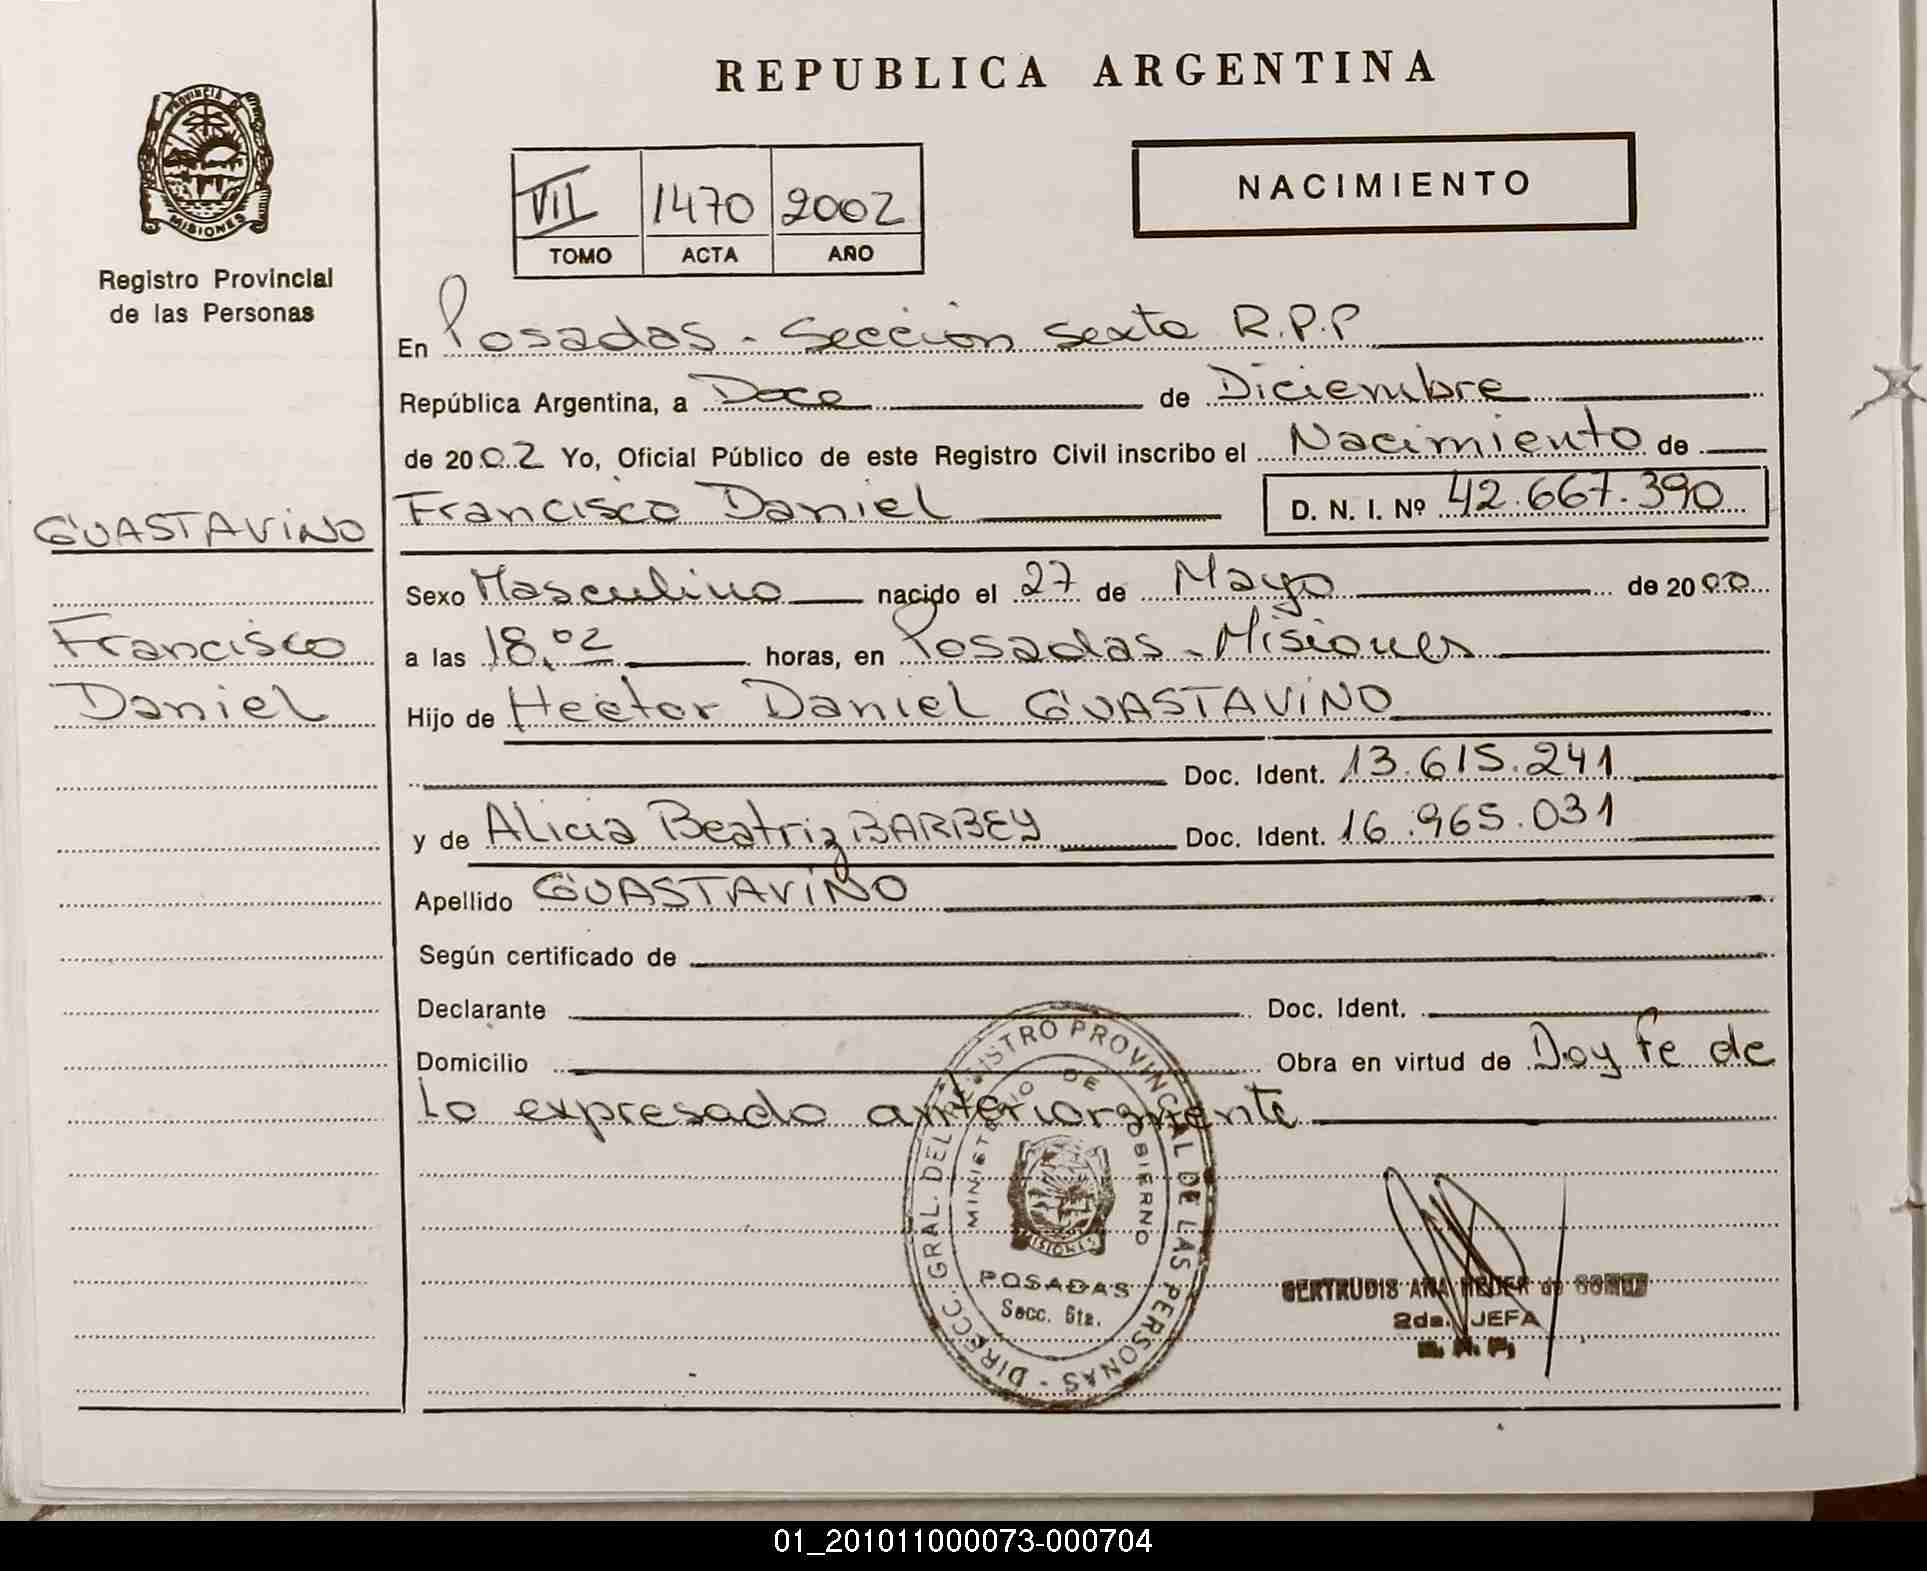 REPUBLICA ARGENTINA
PROVINCIA DE
MISIONES
Registro Provincial
de las Personas
VII 1470 2002
TOMO ACTA AÑO
NACIMIENTO
En Posadas - Sección sexta R.P.P
República Argentina, a Doce de Diciembre
de 2002 Yo, Oficial Público de este Registro Civil inscribo el Nacimiento de
Francisco Daniel D. N. I. Nº 42.667.390
GUASTAVINO
Francisco
Daniel
Sexo Masculino nacido el 27 de Mayo de 2000
a las 18,02 horas, en Posadas - Misiones
Hijo de Hector Daniel GUASTAVINO
Doc. Ident. 13.615.241
y de Alicia Beatriz BARBEY Doc. Ident. 16.965.031
Apellido GUASTAVINO
Según certificado de
Declarante Doc. Ident.
Domicilio Obra en virtud de Doy fe de
lo expresado anteriormente
DIRECC. GRAL. DEL REGISTRO PROVINCIAL DE LAS PERSONAS -
MINISTERIO DE GOBIERNO
MISIONES
POSADAS
Secc. 6ta.
GERTRUDIS ANA de
2da. JEFA
R. P. P.
01_201011000073-000704